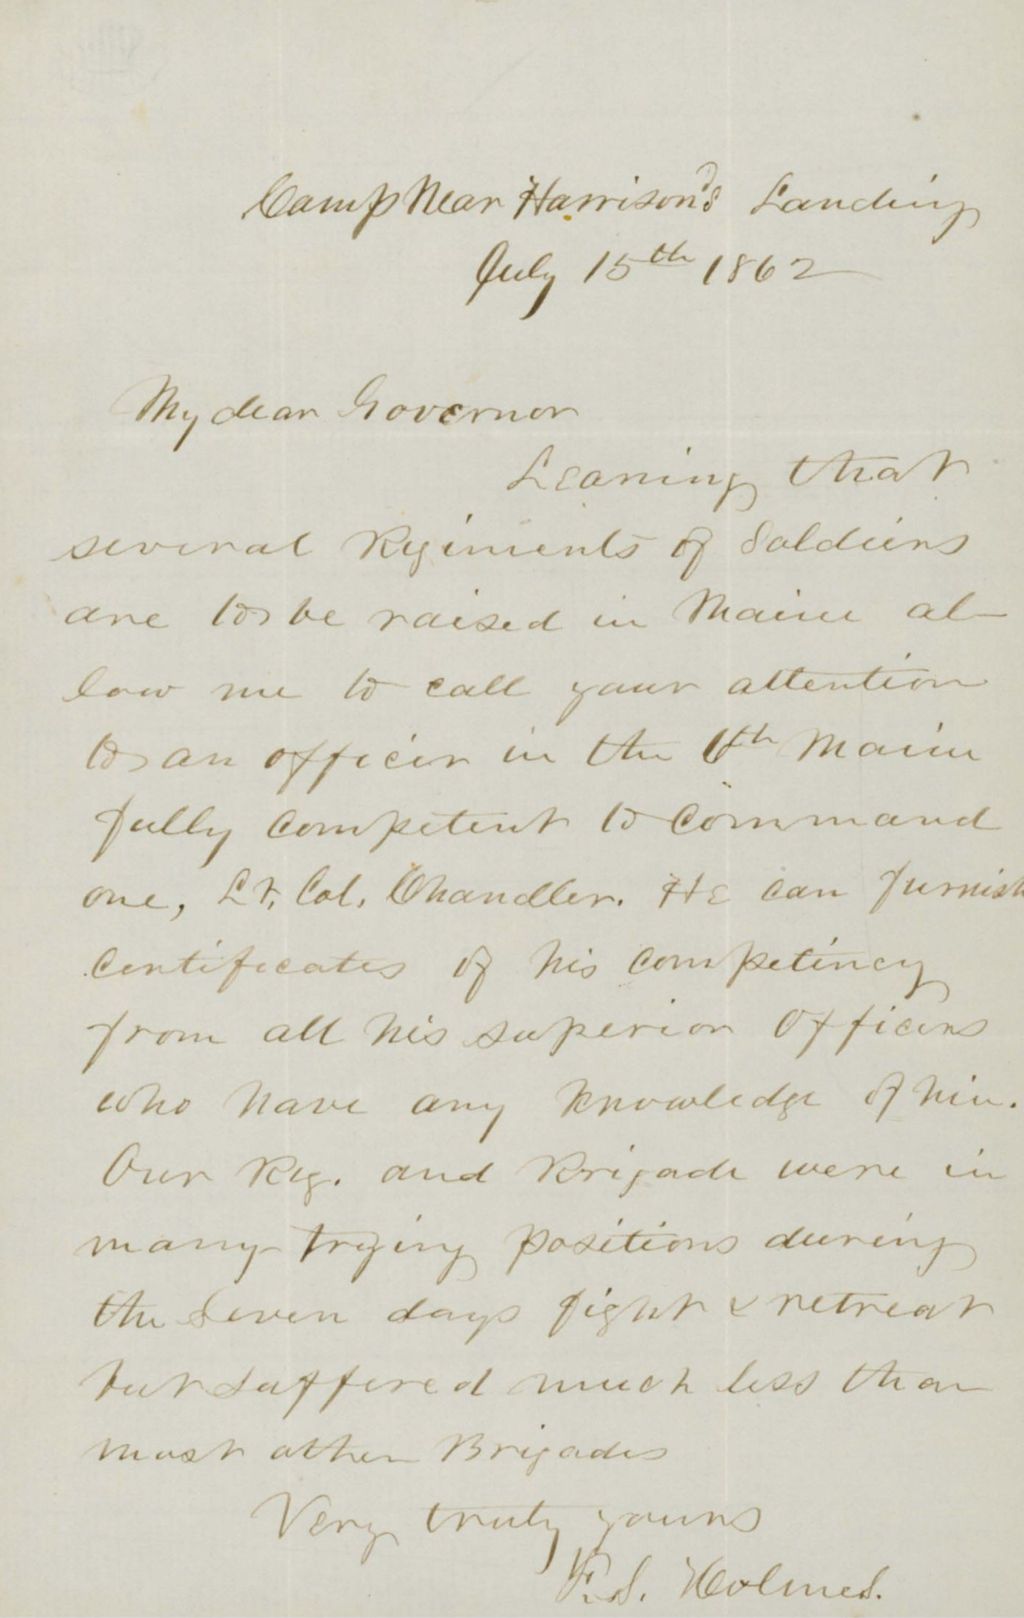 Camp Near Harrison's Landing
July 15th 1862
My dear Governor
Learning that
several Regiments of Soldiers
are to be raised in Maine al-
low me to call your attention
to an officer in the 6th Maine
fully competent to command
one, Lt. Col. Chandler. He can furnish
certificates of his competency
from all his superior Officers
who have any knowledge of him.
Our Reg. and Brigade were in
many trying positions during
the Seven days fight & retreat
but suffered much less than
most other Brigades
Very truly yours
F. S. Holmes.